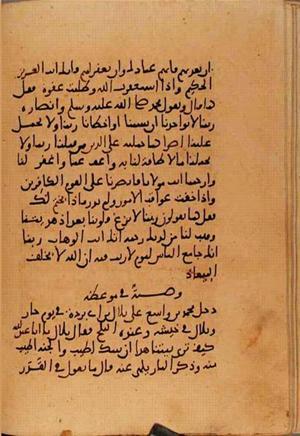 ان تعذبهم فانهم عبادك وان تغفر لهم فانك انت العزيز
الحكيم واذا استعفرت الله وطلبت عفوه فقل
كما قال ويقول محمد صلى الله عليه وسلم وانصاره
ربنا لا تواخذنا ان نسينا او اخطانا ربنا ولا تحمل
علينا اصرا كما حملته على الذين من قبلنا ربنا ولا
تحملنا ما لا طاقة لنا به واعف عنا واغفر لنا
وارحمنا انت مولانا فانصرنا على القوم الكافرين
واذا خفت عواقب الامور ولم تدر ماذا لك
فقل كما يقولون ربنا لا تزغ قلوبنا بعد اذ هديتنا
وهب لنا من لدنك رحمة انك انت الوهاب ربنا
انك جامع الناس ليوم لا ريب فيه ان الله لا يخلف
الميعاد
وصية في موعظة
دخل محمد بن واسع على بلال بن ابي بردة في يوم حار
وبلال في خيشه وعنده الثلج فقال بلال يا ابا عبدالله
كيف ترى بيتنا هذا ان بيتك لطيب والجنة اطيب
منه وذكر النار يلهي عنه قال ما تقول في القدر